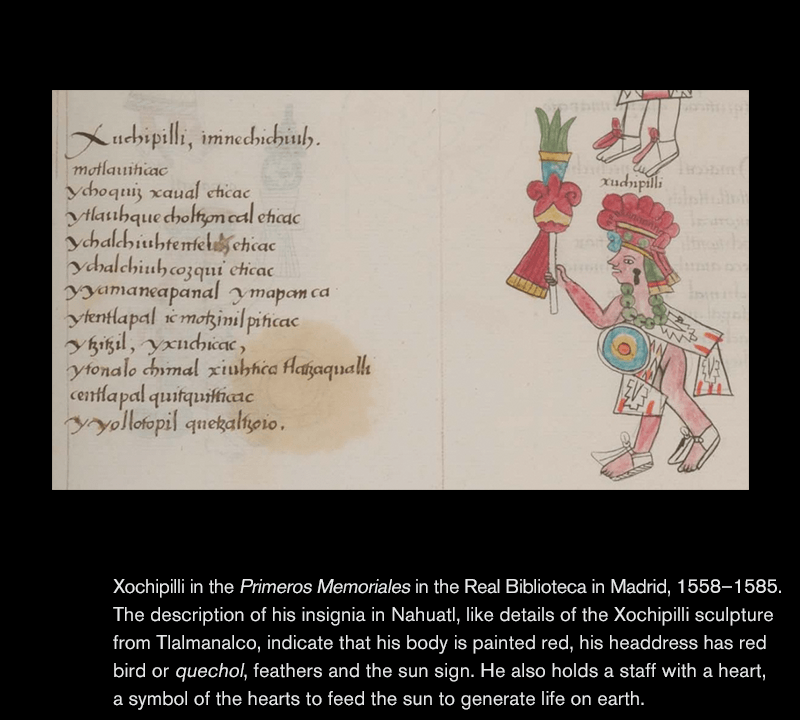 Xuchipilli, imnechichiuh.
motlauiticac
ychoquiz xaual eticac
ytlauhquecholtzoncal eticac
ychalchiuhtentel eticac
ychalchiuhcozqui eticac
yyamaneapanal ymapanca
ytentlapal ic motzinilpiticac
ytzitzil, yxuchicac,
ytonalo chimal xiuhtica tlatzaqualli
centlapal quitquitticac
yyollotopil quetzaltzoio.
xuchipilli
Xochipilli in the Primeros Memoriales in the Real Biblioteca in Madrid, 1558–1585.
The description of his insignia in Nahuatl, like details of the Xochipilli sculpture
from Tlalmanalco, indicate that his body is painted red, his headdress has red
bird or quechol, feathers and the sun sign. He also holds a staff with a heart,
a symbol of the hearts to feed the sun to generate life on earth.